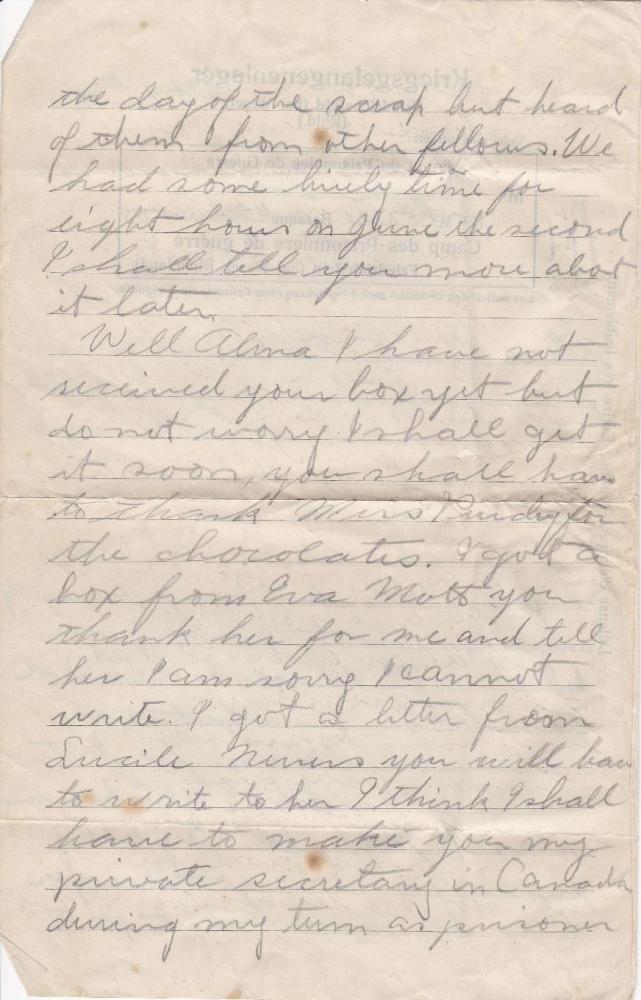 the day of the scrap but heard
of them from other fellows. We
had some lively time for
eight hours on June the second
I shall tell you more about
it later.
Well Alma I have not
received your box yet but
do not worry I shall get
it soon, you shall have
to thank Miss Purdy for
the chocolates. I got a
box from Eva Mott you
thank her for me and tell
her I am sorry I cannot
write. I got a letter from
Lucile you will have
to write to her I think I shall
have to make you my
private secretary in Canada
during my turn as prisoner
Kriegsgefangenenlager
Camp des Prisonniers de guerre